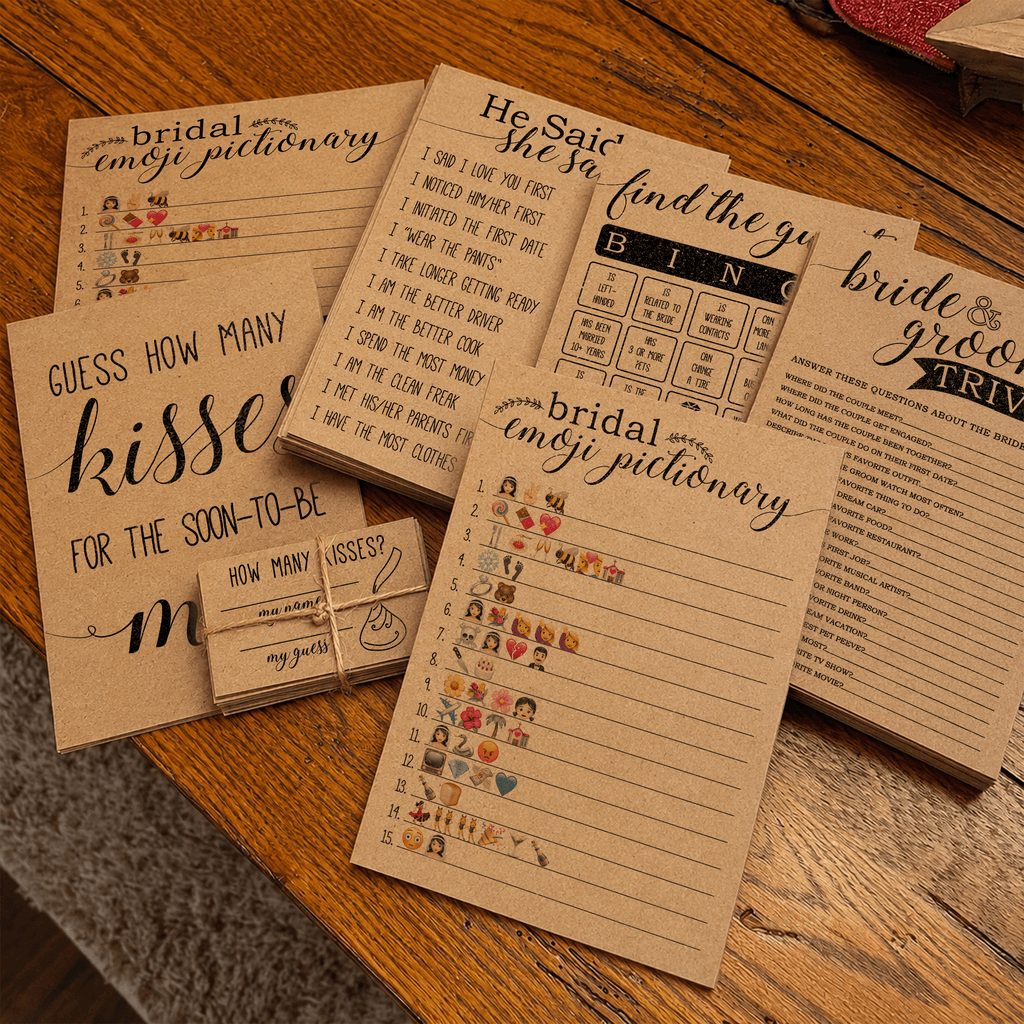 bridal
emoji pictionary
1.
2.
3.
4.
5.
6
He Said
she sa
I SAID I LOVE YOU FIRST
I NOTICED HIM/HER FIRST
I INITIATED THE FIRST DATE
I "WEAR THE PANTS"
I TAKE LONGER GETTING READY
I AM THE BETTER DRIVER
I AM THE BETTER COOK
I SPEND THE MOST MONEY
I AM THE CLEAN FREAK
I MET HIS/HER PARENTS FIR
I HAVE THE MOST CLOTHES
find the gu
B I N G
IS LEFT-HANDED
IS RELATED TO THE BRIDE
IS WEARING CONTACTS
CAN MORE LAN
HAS BEEN MARRIED 10+ YEARS
HAS 3 OR MORE PETS
CAN CHANGE A TIRE
IS
IS THE
bride &
groom
TRIV
ANSWER THESE QUESTIONS ABOUT THE BRIDE
WHERE DID THE COUPLE MEET?
WHERE DID THE COUPLE GET ENGAGED?
HOW LONG HAS THE COUPLE BEEN TOGETHER?
WHAT DID THE COUPLE DO ON THEIR FIRST DATE?
DESCRIBE 'S FAVORITE OUTFIT
E GROOM WATCH MOST OFTEN?
FAVORITE THING TO DO?
DREAM CAR?
AVORITE FOOD?
AVORITE RESTAURANT?
WORK?
FIRST JOB?
VORITE MUSICAL ARTIST?
VORITE BAND?
OR NIGHT PERSON?
VORITE DRINK?
EAM VACATION?
EST PET PEEVE?
MOST?
RITE TV SHOW?
RITE MOVIE?
GUESS HOW MANY
kisses
FOR THE SOON-TO-BE
m
HOW MANY KISSES?
my name
my guess
bridal
emoji pictionary
1.
2.
3.
4.
5.
6.
7.
8.
9.
10.
11.
12.
13.
14.
15.